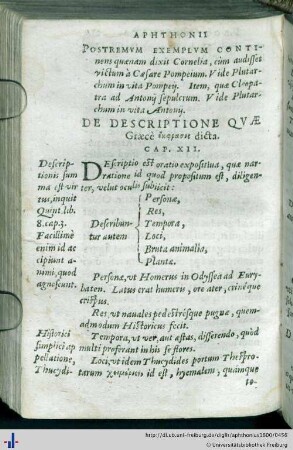 APHTHONII
POSTREMVM EXEMPLVM CONTI-
nens quænam dixit Cornelia, cùm audisset
victum à Cæsare Pompeium. Vide Plutar-
chum in vita Pompeij. Item, quæ Cleopa-
tra ad Antonij sepulcrum. Vide Plutar-
chum in vita Antonij.
DE DESCRIPTIONE QVÆ
Græcè ἔκφρασις dicta.
CAP. XII.
Descrip-
tionis sum
ma est vir
tus, inquit
Quint. lib.
8. cap. 3.
Facillimè
enim id ac
cipiunt a-
nimi, quod
agnoscunt.
DEscriptio est oratio expositiua, quæ nar-
ratione id quod propositum est, diligen-
ter, velut oculis subijcit:
Describun-
tur autem
Personæ,
Res,
Tempora,
Loci,
Bruta animalia,
Plantæ.
Personæ, vt Homerus in Odyssea ad Eury-
baten. Latus erat humeris, ore ater, crinéque
crispus.
Res, vt nauales pedestrésque pugnæ, quem-
admodum Historicus fecit.
Historici
simplici ap
pellatione,
Thucydi-
Tempora, vt ver, aut æstas, disserendo, quòd
multi proferant in his se flores.
Loci, vt idem Thucydides portum Thespro-
tarum χειμέριον id est, hyemalem, quánque
in-
http://dl.ub.uni-freiburg.de/diglit/aphthonius1600/0456
© Universitätsbibliothek Freiburg